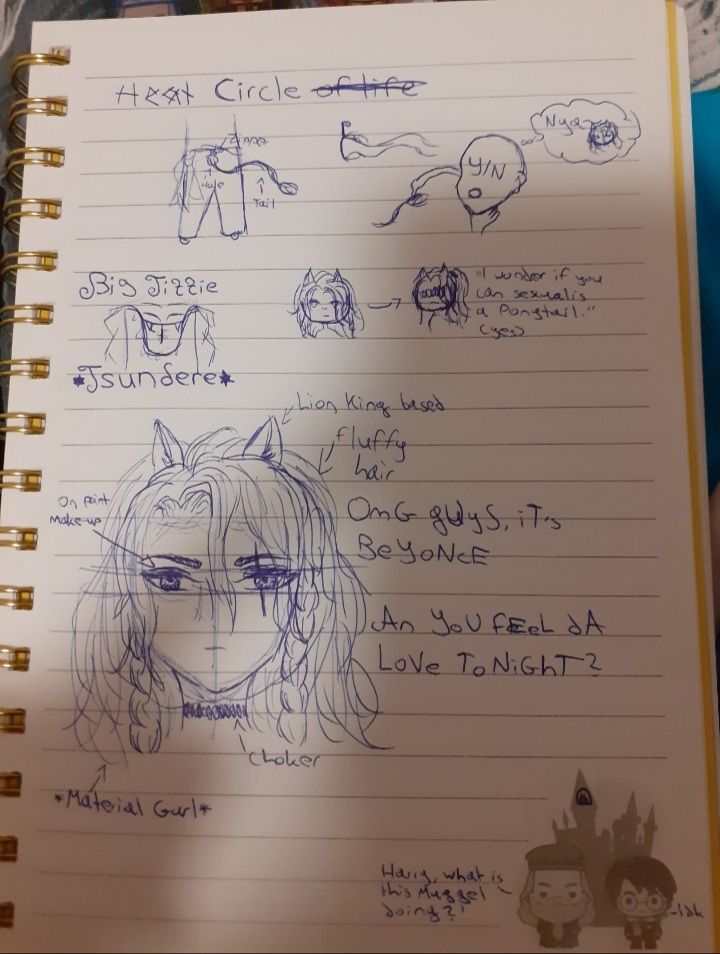 Heat Circle of life
Zipper
Hole
Tail
Y/N
Nya~
Big Tizzie
*Tsundere*
"I wonder if you
can sexualis
a Ponytail."
(yes)
Lion King based
fluffy
hair
On point
Make-up
OmG gUyS, iT's
BeYoNcE
An YoU fEEL dA
LoVe ToNiGhT?
Choker
*Material Gurl*
Harry, what is
this Muggel
doing?!
-Idk